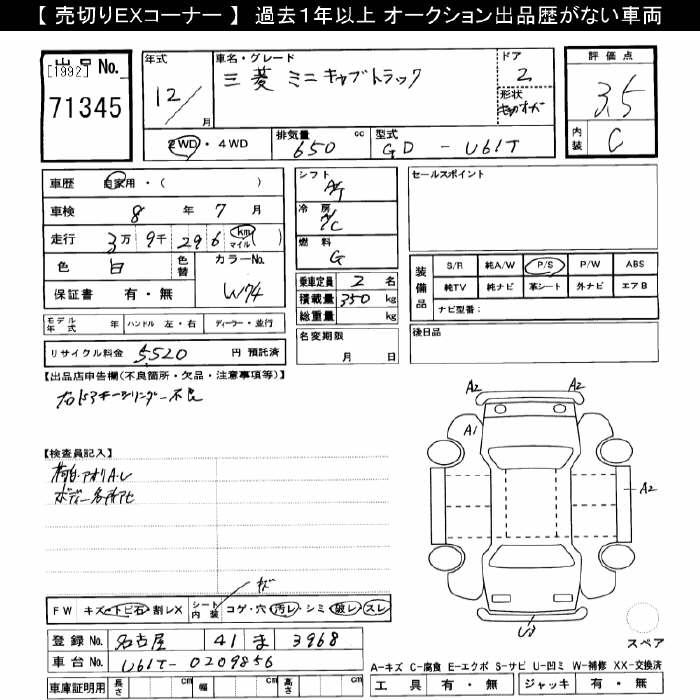 【 売切りEXコーナー 】 過去１年以上 オークション出品歴がない車両
出品No.
[1992]
71345
年式
12/
月
車名・グレード
三菱 ミニキャブトラック
ドア
2
形状
評価点
3.5
内装
C
2WD・4WD
排気量
650 cc
型式
GD - U61T
車歴 自家用・( )
車検 8 年 7 月
走行 3万 9千 296 km マイル ( )
色 白
色替
カラーNo.
W74
保証書 有・無
モデル年式 年
ハンドル 左・右
ディーラー・並行
リサイクル料金 5520 円 預託済
シフト
冷房
A/C
燃料
G
乗車定員 2 名
積載量 350 kg
総重量 kg
名変期限
月 日
セールスポイント
装備品
S/R 純A/W P/S P/W ABS
純TV 純ナビ 革シート 外ナビ エアB
ナビ型番:
後日品
【出品店申告欄(不良箇所・欠品・注意事項等)】
右ドアキーシリンダー不良
【検査員記入】
荷台・アオリA・U
A2
A2
A1
A2
FW キズ・トビ石・割レX
シート内装
コゲ・穴・汚レ・シミ・破レ・スレ
スペア
登録No. 名古屋 41 ま 3968
車台No. U61T-0209856
車庫証明用 長さ cm 幅 cm 高さ cm
A-キズ C-腐食 E-エクボ S-サビ U-凹ミ W-補修 XX-交換済
工具 有・無 ジャッキ 有・無